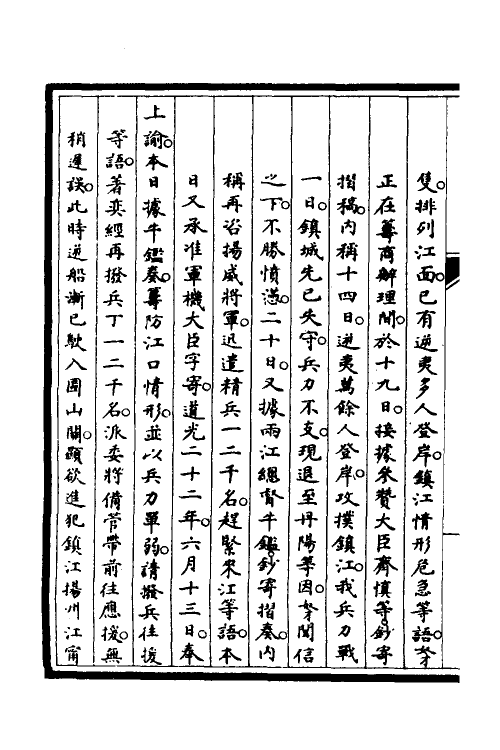 隻。排列江面。已有逆夷多人登岸。鎮江情形危急等語。奴才
正在籌商辦理間。於十九日。接據叅贊大臣齊慎等。鈔寄
摺稿。內稱十四日。逆夷萬餘人登岸。攻撲鎮江。我兵力戰
一日。鎮城先已失守。兵力不支。現退至丹陽等因。奴才聞信
之下。不勝憤懣。二十日。又據兩江總督牛鑑。鈔寄摺奏。內
稱再咨揚威將軍。迅遣精兵一二千名。趕緊來江等語。本
日又承准軍機大臣字寄。道光二十二年。六月十三日。奉
上諭。本日據牛鑑奏。籌防江口情形。並以兵力單弱。請撥兵往援
等語。著奕經再撥兵丁一二千名。派委將備管帶前往應援。無
稍遲誤。此時逆船漸已駛入圌山關。顯欲進犯鎮江揚州江甯